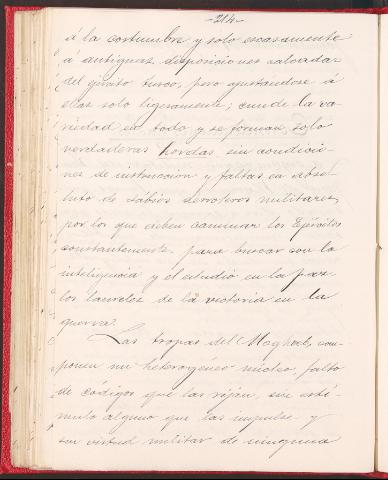 -214-
á la costumbre y solo escasamente
á antiguas disposiciones calcadas
del ejército turco, pero ajustándose á
ellas solo ligeramente; cunde la va-
riedad en todo y se forman, solo
verdaderas hordas sin condicio-
nes de instruccion y faltas en abso-
luto de sábios derroteros militares,
por los que deben caminar los Ejércitos
constantemente para buscar con la
inteligencia y el estudio en la paz
los laureles de la victoria en la
guerra.
Las tropas del Maghzen, com-
ponen un heterogéneo núcleo, falto
de códigos que las rijan, sin estí-
mulo alguno que las impulse y
sin virtud militar de ninguna